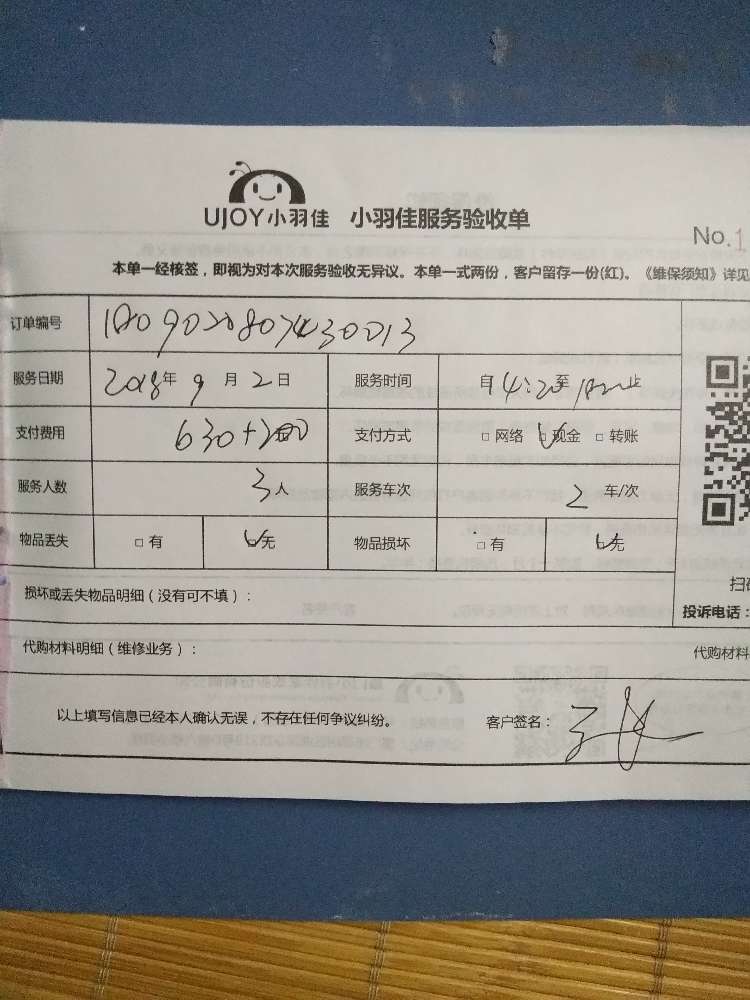 UJOY小羽佳 小羽佳服务验收单
No.1
本单一经核签，即视为对本次服务验收无异议。本单一式两份，客户留存一份(红)。《维保须知》详见
订单编号
服务日期 2018年9月2日 服务时间 自4:20至 止
支付费用 630+200 支付方式 □网络 现金 □转账
服务人数 3人 服务车次 2车/次
物品丢失 □有 无 物品损坏 □有 无
损坏或丢失物品明细（没有可不填）：
扫
投诉电话：
代购材料明细（维修业务）： 代购材料
以上填写信息已经本人确认无误，不存在任何争议纠纷。 客户签名：